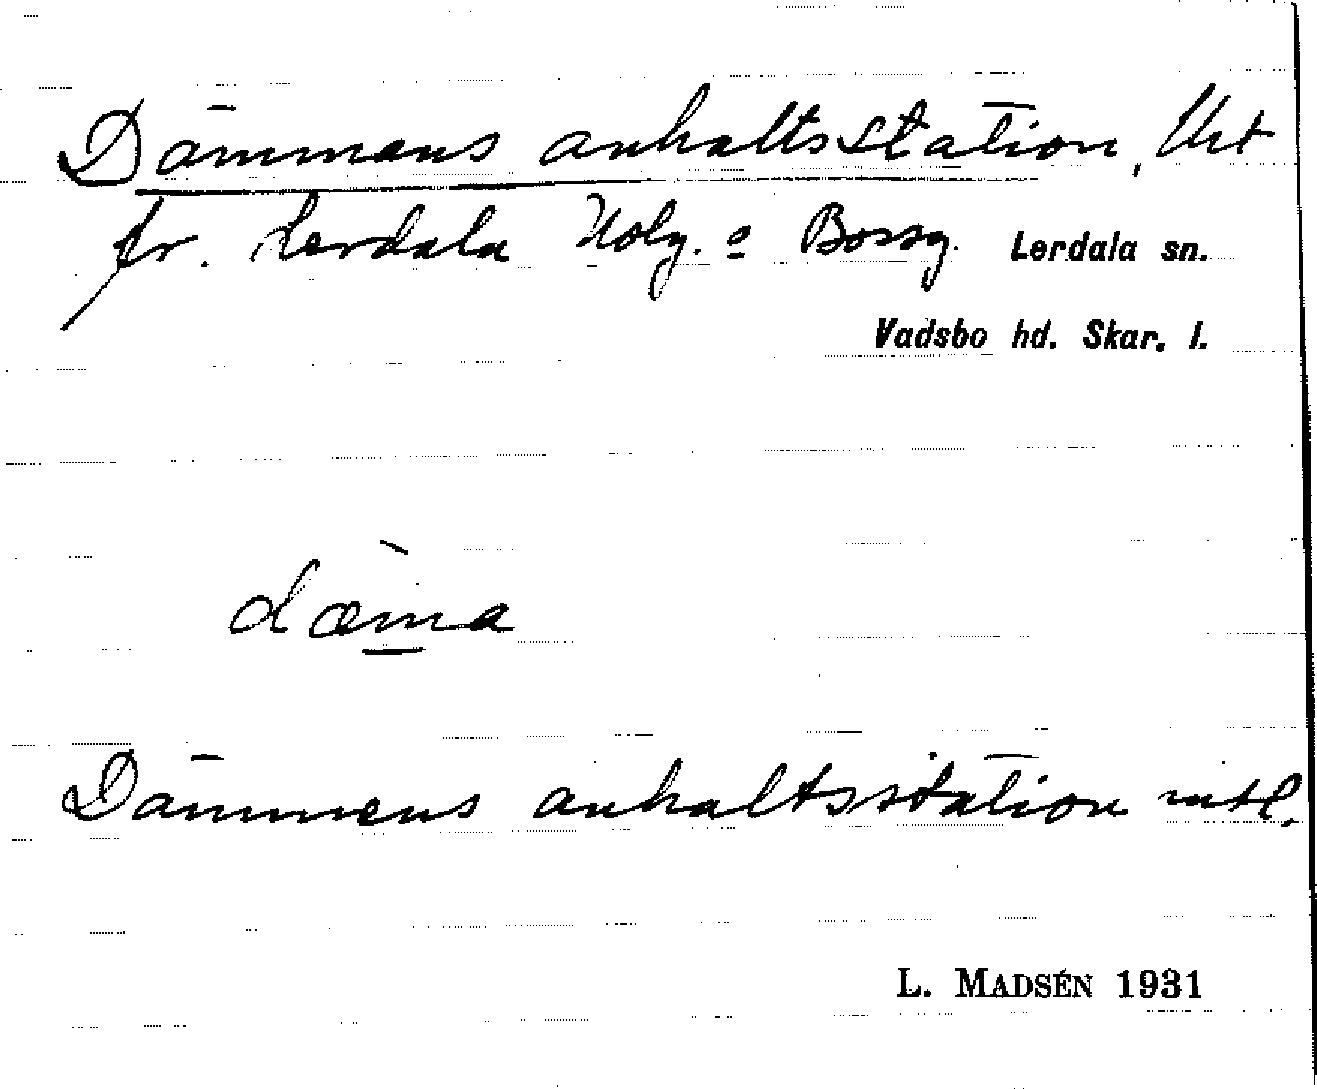 Dämmens anhaltsstation, Utt
fr. Lerdala Holg. o Bossg. Lerdala sn.
Vadsbo hd. Skar. l.
dæ̀ma
Dämmens anhaltsstation mtl.
L. MADSÉN 1931